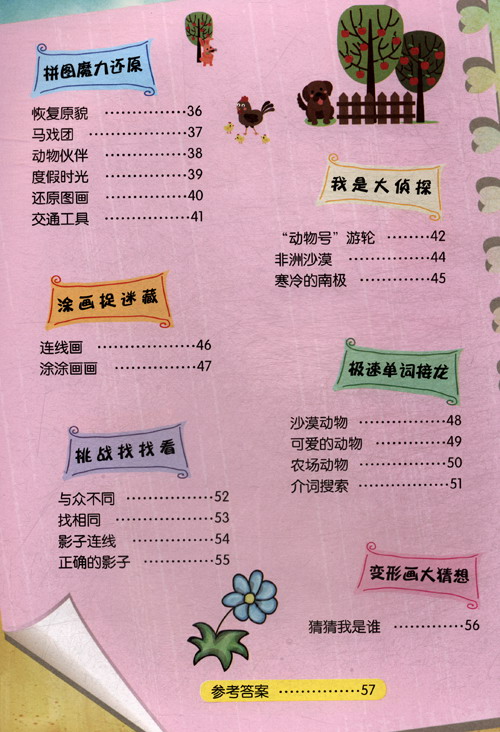 拼图魔力还原
恢复原貌 ················36
马戏团 ··················37
动物伙伴 ················38
度假时光 ················39
还原图画 ················40
交通工具 ················41
我是大侦探
“动物号”游轮 ········42
非洲沙漠 ··············44
寒冷的南极 ············45
涂画捉迷藏
连线画 ··················46
涂涂画画 ················47
极速单词接龙
沙漠动物 ··············48
可爱的动物 ············49
农场动物 ··············50
介词搜索 ··············51
挑战找找看
与众不同 ················52
找相同 ··················53
影子连线 ················54
正确的影子 ··············55
变形画大猜想
猜猜我是谁 ············56
参考答案 ···············57